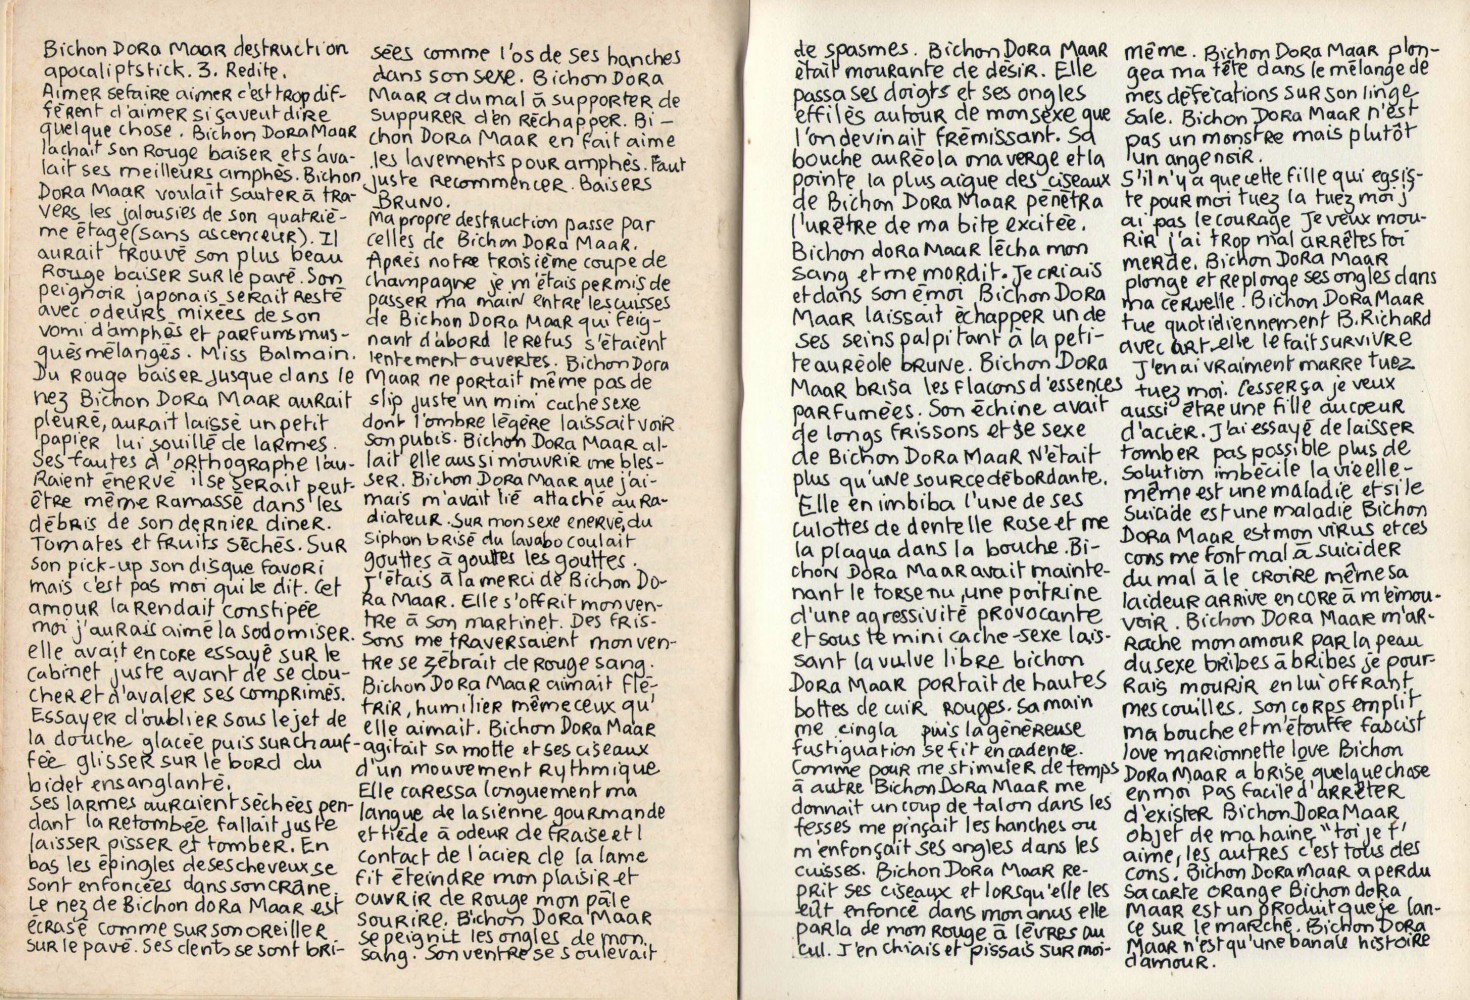 Bichon DORa MaaR destRucti on
apocaliptstick. 3. Redite.
AimeR se faire aimeR c'est tROp dif-
féRent d'aimeR si ça veut diRe
quelque chose. Bichon DORa MaaR
lachait son Rouge baiseR et s'ava-
lait ses meilleuRs amphés. Bichon
DORa MaaR voulait sauteR à tRa-
veRs les jalousies de son quatRiè-
me étage (sans ascenceuR). Il
auRait tRouvé son plus beau
Rouge baiseR suR le pavé. Son
peignoiR japonais seRait Resté
avec odeuRs mixées de son
vomi d'amphés et paRfums mus-
qués mélangés. Miss Balmain.
Du Rouge baiseR jusque dans le
nez Bichon DORa MaaR auRait
pleuRé, auRait laissé un petit
papieR lui souillé de laRmes.
Ses fautes d'ORthographe l'au-
Raient éneRvé il se seRait peut-
être même Ramassé dans les
débRis de son deRnieR dineR.
Tomates et fRuits séchés. SuR
son pick-up son disque favoRi
mais c'est pas moi qui le dit. Cet
amouR la Rendait constipée
moi j'auRais aimé la sodomiseR.
elle avait encoRe essayé suR le
cabinet juste avant de se dou-
cheR et d'avaleR ses compRimés.
EssayeR d'oublieR sous le jet de
la douche glacée puis suRchauf-
fée glisseR suR le bord du
bidet ensanglanté.
Ses laRmes auRaient séchées pen-
dant la Retombée fallait juste
laisseR pisseR et tombeR. En
bas les épingles de ses cheveux se
sont enfoncées dans son cRâne.
Le nez de Bichon doRa MaaR est
écRasé comme suR son oReilleR
suR le pavé. Ses dents se sont bRi-
sées comme l'os de ses hanches
dans son sexe. Bichon DORa
MaaR a du mal à suppoRteR de
suppuReR d'en RéchappeR. Bi-
chon DORa MaaR en fait aime
les lavements pouR amphés. Faut
juste RecommenceR. BaiseRs
BRUNO.
Ma propre destRuction passe paR
celles de Bichon DORa MaaR.
ApRès notRe tRoisième coupe de
champagne je m'étais peRmis de
passeR ma main entRe les cuisses
de Bichon DORa MaaR qui feig-
nant d'aboRd le Refus s'étaient
lentement ouveRtes. Bichon Dora
MaaR ne poRtait même pas de
slip juste un mini cache sexe
dont l'ombRe légèRe laissait voiR
son pubis. Bichon DORa MaaR al-
lait elle aussi m'ouvRiR me bles-
seR. Bichon DORa MaaR que j'ai-
mais m'avait lié attaché au Ra-
diateuR. SuR mon sexe eneRvé, du
siphon bRisé du lavabo coulait
gouttes à gouttes les gouttes.
J'étais à la meRci de Bichon Do-
Ra MaaR. Elle s'offRit mon ven-
tRe à son maRtinet. Des fRis-
sons me tRaveRsaient mon ven-
tRe se zébRait de Rouge sang.
Bichon DORa MaaR aimait flé-
tRiR, humilieR même ceux qu'
elle aimait. Bichon DORa MaaR
agitait sa motte et ses ciseaux
d'un mouvement Rythmique
Elle caRessa longuement ma
langue de la sienne gouRmande
et tiède à odeuR de fRaise et l
contact de l'acieR de la lame
fit éteindRe mon plaisiR et
ouvRiR de Rouge mon pâle
souRiRe. Bichon DORa MaaR
se peignit les ongles de mon
sang. Son ventRe se soulevait
de spasmes. Bichon DORa MaaR
était mouRante de désiR. Elle
passa ses doigts et ses ongles
effilés autouR de mon sexe que
l'on devinait fRémissant. Sa
bouche auRéola ma veRge et la
pointe la plus aigue des ciseaux
de Bichon DORa MaaR pénétRa
l'uRêtRe de ma bite excitée.
Bichon doRa MaaR lécha mon
sang et me moRdit. Je cRiais
et dans son émoi Bichon DORa
MaaR laissait échappeR un de
ses seins palpitant à la peti-
te auRéole bRuNe. Bichon DORa
MaaR bRisa les flacons d'essences
paRfumées. Son échine avait
de longs fRissons et se sexe
de Bichon DORa MaaR N'était
plus qu'uNe souRce déboRdante.
Elle en imbiba l'uNe de ses
culottes de dentelle Rose et me
la plaqua dans la bouche. Bi-
chon DORa MaaR avait mainte-
nant le toRse nu, une poitRine
d'une agRessivité pRovocante
et sous te mini cache-sexe lais-
sant la vulve libRe bichon
DORa MaaR poRtait de hautes
bottes de cuiR Rouges. Sa main
me cingla puis la généReuse
fustiguation se fit en cadence.
Comme pouR me stimuleR de temps
à autRe Bichon DORa MaaR me
donnait un coup de talon dans les
fesses me pinçait les hanches ou
m'enfonçait ses ongles dans les
cuisses. Bichon DORa MaaR Re-
pRit ses ciseaux et loRsqu'elle les
eût enfoncé dans mon anus elle
paRla de mon Rouge à lèvRes au
cul. J'en chiais et pissais suR moi-
même. Bichon DORa MaaR plon-
gea ma tête dans le mélange de
mes défécations suR son linge
sale. Bichon DORa MaaR n'est
pas un monstRe mais plutôt
un ange noiR.
S'il n'y a que cette fille qui egsis-
te pouR moi tuez la tuez moi j'
ai pas le couRage Je veux mou-
RiR j'ai tRop mal aRRêtes toi
meRde. Bichon DORa MaaR
plonge et Replonge ses ongles dans
ma ceRvelle. Bichon DORa MaaR
tue quotidiennement B.RichaRd
avec aRt elle le fait suRvivRe
J'en ai vRaiment maRRe tuez
tuez moi. Cesser ça je veux
aussi être une fille au coeuR
d'acieR. J'ai essayé de laisseR
tombeR pas possible plus de
solution imbécile la vie elle-
même est une maladie et si le
suicide est une maladie Bichon
DORa MaaR est mon viRus et ces
cons me font mal à suicideR
du mal à le cRoiRe même sa
laideuR aRRive encoRe à m'émou-
voiR. Bichon DORa MaaR m'aR-
Rache mon amouR paR la peau
du sexe bRibes à bRibes je pouR-
Rais mouRiR en lui offRant
mes couilles. Son coRps emplit
ma bouche et m'étouffe fascist
love maRionnette love Bichon
DORa MaaR a bRisé quelque chose
en moi pas facile d'aRRêteR
d'existeR Bichon DORa MaaR
objet de ma haine "toi je t'
aime, les autRes c'est tous des
cons. Bichon DoRa MaaR a peRdu
sa caRte oRange Bichon doRa
MaaR est un pRoduit que je lan-
ce suR le maRché. Bichon DORa
MaaR n'est qu'une banale histoiRe
d'amouR.